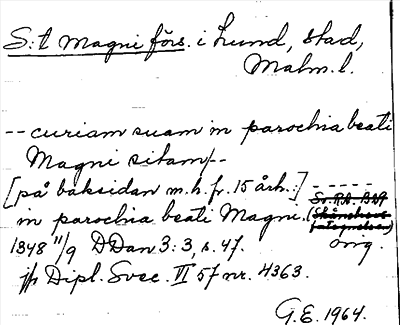 S:t Magni förs. i Lund, stad,
Malm. l.
-- curiam suam in parochia beati
Magni sitam --
[på baksidan m.h. fr. 15 årh.:] -----
in parochia beati Magni. Sv.R.A.
orig.
1348 11/9 DDan 3:3, s. 47.
jfr Dipl. Svec. VI 57 nr. 4363.
G.E. 1964.